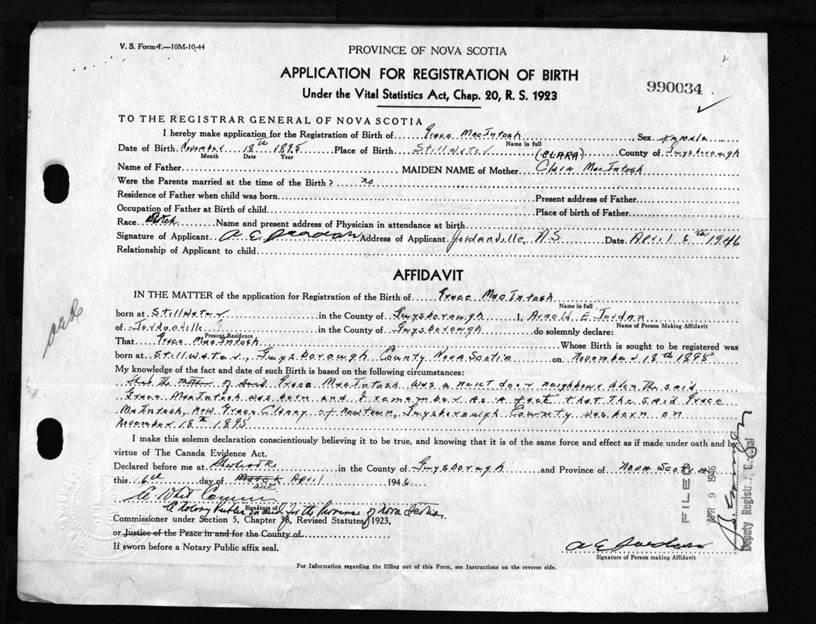 V. S. Form 1.—10M-10-44
PROVINCE OF NOVA SCOTIA
APPLICATION FOR REGISTRATION OF BIRTH
Under the Vital Statistics Act, Chap. 20, R. S. 1923
990034
TO THE REGISTRAR GENERAL OF NOVA SCOTIA
I hereby make application for the Registration of Birth of Grace MacIntosh Sex Female
Name in full
Date of Birth November 18th 1895 Place of Birth Stillwater County of Guysborough
Month Date Year (CLARA)
Name of Father MAIDEN NAME of Mother Clara MacIntosh
Were the Parents married at the time of the Birth? no
Residence of Father when child was born Present address of Father
Occupation of Father at Birth of child Place of birth of Father
Race Name and present address of Physician in attendance at birth
Signature of Applicant A E Jordan Address of Applicant Jordanville, N.S Date April 6th 1946
Relationship of Applicant to child
AFFIDAVIT
IN THE MATTER of the application for Registration of the Birth of Grace MacIntosh
Name in full
born at Stillwater in the County of Guysborough I, Arnold E Jordan
Name of Person Making Affidavit
of Jordanville in the County of Guysborough do solemnly declare:
Present Residence
That Grace MacIntosh Whose Birth is sought to be registered was
born at Stillwater, Guysborough County Nova Scotia on November 18th 1895
My knowledge of the fact and date of such Birth is based on the following circumstances:
of said Grace MacIntosh was a next door neighbour when the said
Grace MacIntosh was born and I remember as a fact that the said Grace
MacIntosh, now Grace of Newtown, Guysborough County was born on
November 18th 1895
I make this solemn declaration conscientiously believing it to be true, and knowing that it is of the same force and effect as if made under oath and by
virtue of The Canada Evidence Act.
Declared before me at Sherbrooke in the County of Guysborough and Province of Nova Scotia
this 6th day of March April 1946
Signature of
A Notary Public in and for the Province of Nova Scotia
Commissioner under Section 5, Chapter 38, Revised Statutes 1923,
or Justice of the Peace in and for the County of
If sworn before a Notary Public affix seal.
A E Jordan
Signature of Person making Affidavit
For Information regarding the filling out of this Form, see Instructions on the reverse side.
FILED
APR 9 1946
Deputy Registrar General